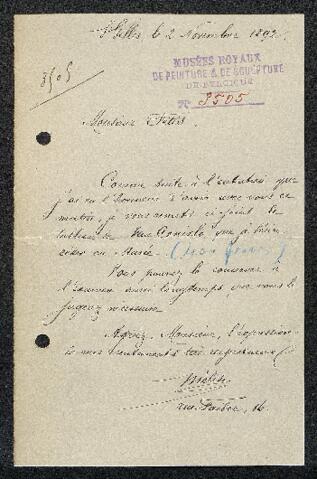 le 2 Novembre 1892
MUSÉES ROYAUX
DE PEINTURE & DE SCULPTURE
DE BELGIQUE
N° 3505
3505
Monsieur Fétis
Comme suite à l'entretien que
j'ai eu l'honneur d'avoir avec vous ce
matin, je vous remets ci-joint le
tableau de que je
au Musée.
Vous pouvez le conserver à
l'examen aussi longtemps que vous le
jugerez nécessaire
Agréez, Monsieur, l'expression
de mes sentiments très respectueux
rue 16.